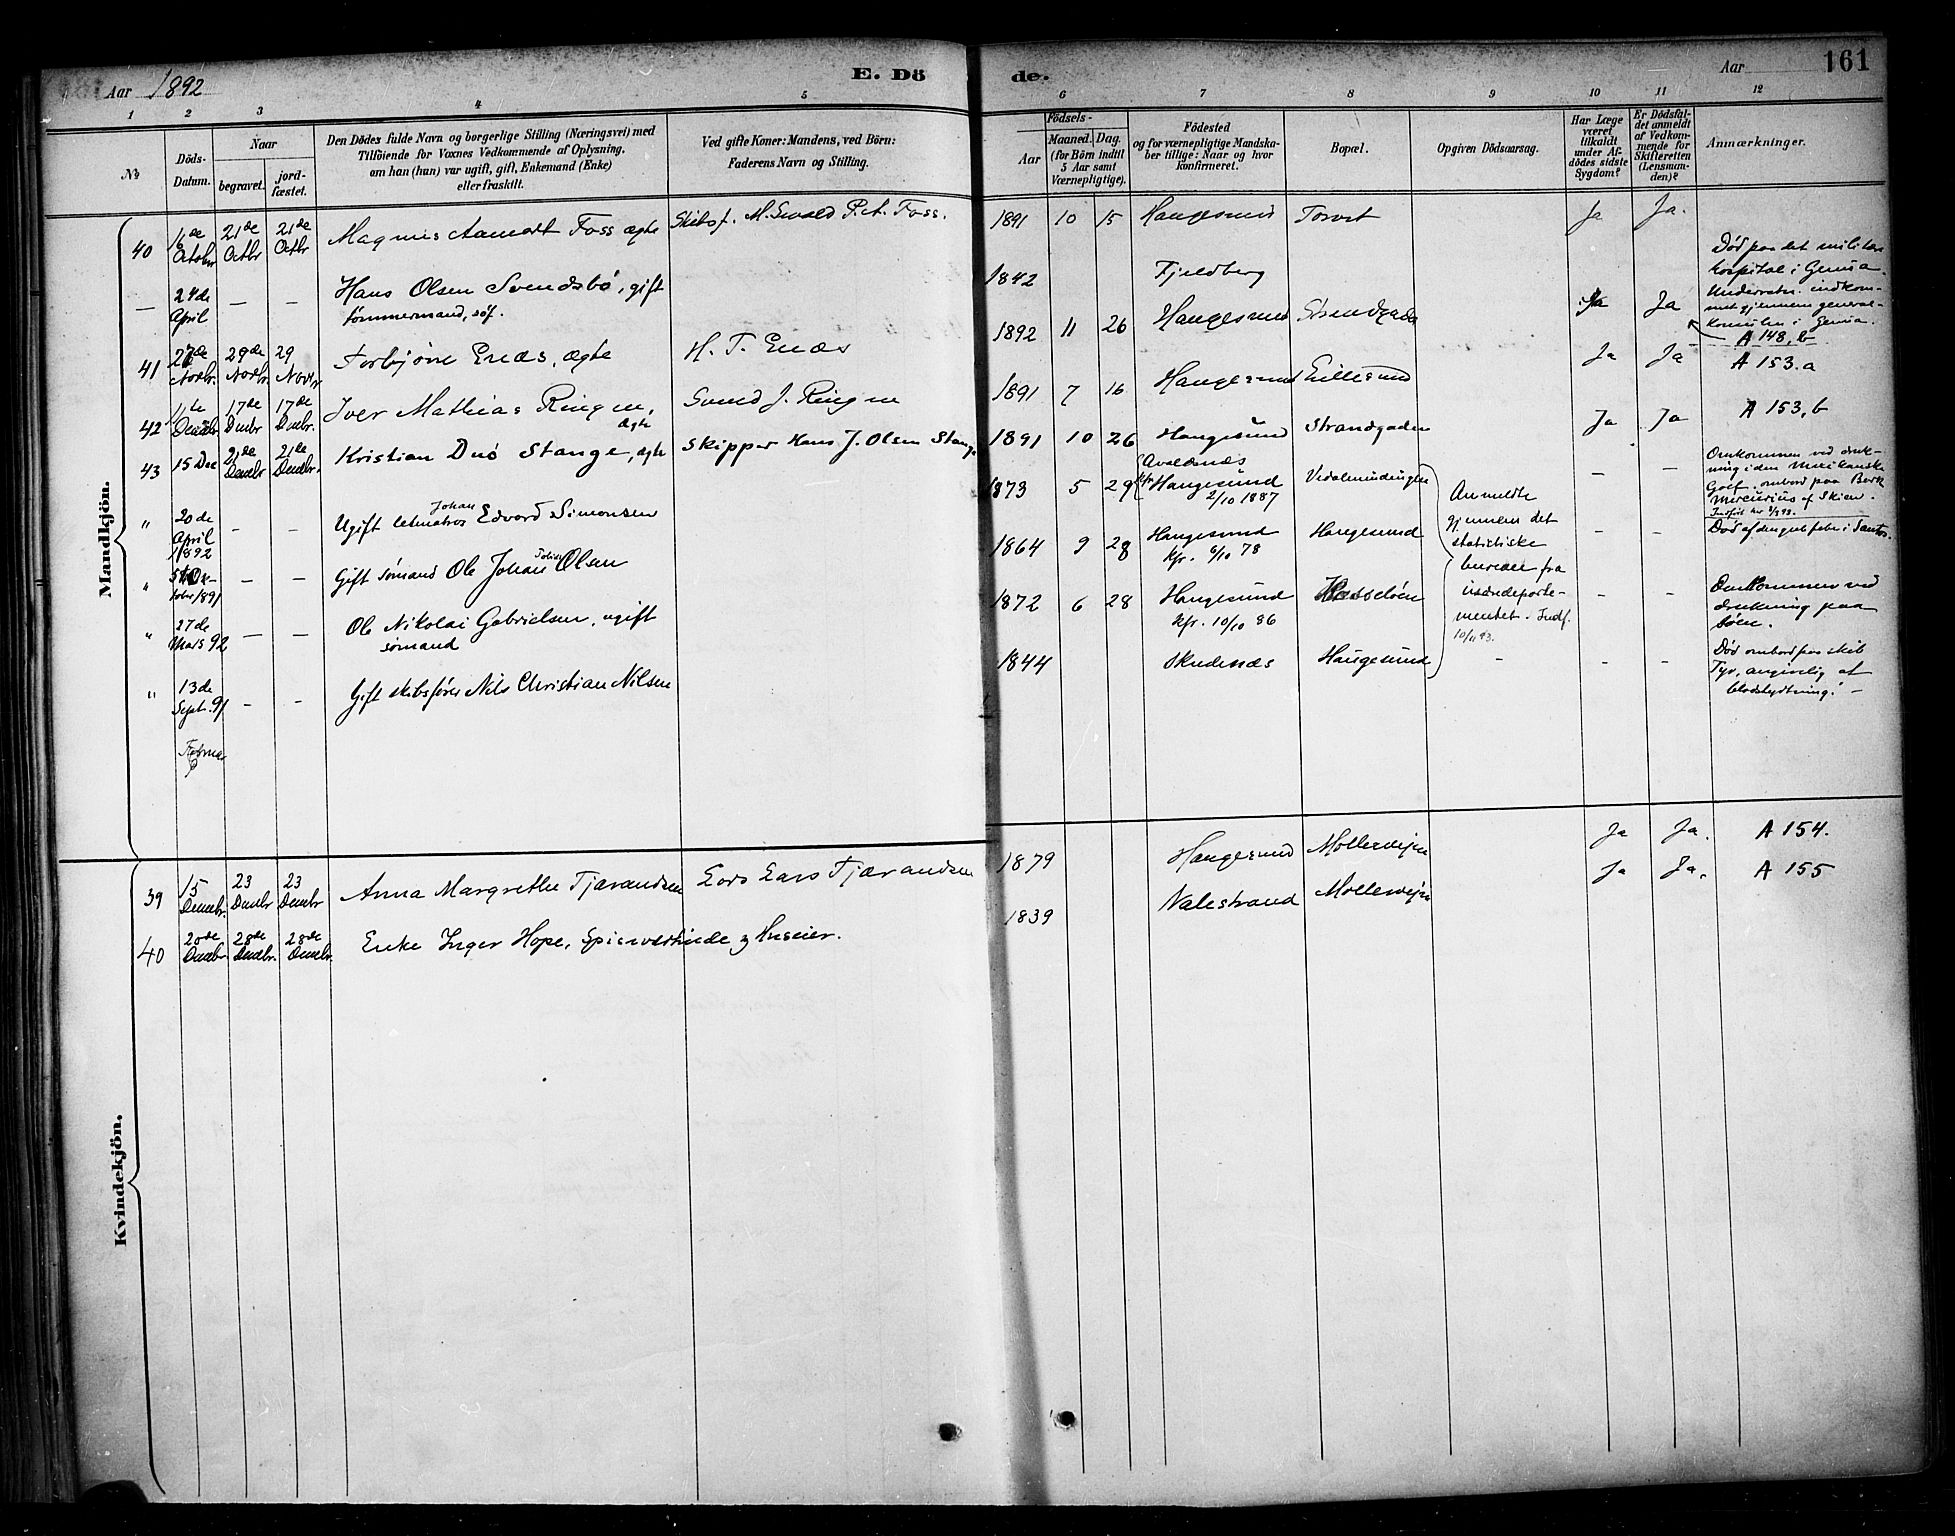 Aar 1892
E. Dö
de.
Aar
161
1 2 3 4 5 6 7 8 9 10 11 12
№
Döds-
Datum.
Naar
begravet.
jord-
fæstet.
Den Dödes fulde Navn og borgerlige Stilling (Næringsvei) med
Tilföiende for Voxnes Vedkommende af Oplysning,
om han (hun) var ugift, gift, Enkemand (Enke)
eller fraskilt.
Ved gifte Koner: Mandens, ved Börn:
Faderens Navn og Stilling.
Födsels-
Aar
Maaned. Dag.
(for Börn indtil
5 Aar samt
Værnepligtige).
Födested
og for værnepligtige Mandska-
ber tillige: Naar og hvor
konfirmeret.
Bopæl.
Opgiven Dödsaarsag.
Har Læge
været
tilkaldt
under Af-
dödes sidste
Sygdom?
Er Dödsfal-
det anmeldt
af Vedkom-
mende for
Skifteretten
(Lensman-
den)?
Anmærkninger.
Mandkjön.
40 16de Octobr 21de Octbr 21de Octbr Magnus Foss ægte Skibsf. P. A. Foss. 1891 10 15 Haugesund Torvet Ja Ja.
— 24de April — — Hans Olsen Svendsbø, gift
tømmermand, søf.
1842 Fjeldberg
Død paa det militære
hospital i Genua.
Underretn. indkom-
met gjennem general-
konsulen i Genua.
A 148, b
41 27de Novbr. 29de Novbr. 29 Novbr Torbjørn Enæs, ægte H. T. Enæs 1892 11 26 Haugesund Ja Ja
A 153.a
42 11te Decebr 17de Decbr 17de Decbr. Iver Mathias Ringen,
ægte
Svend J. Ringen 1891 7 16 Haugesund Lillesund Ja Ja
A 153, b
43 15 Dec 21de Decebr 21de Decebr. Kristian Duø Stange, ægte Skipper Hans J. Olsen Stange 1891 10 26 Haugesund Strandgaden Ja Ja
" 20de April 1892 - - Ugift letmatros Johan Edvard Simonsen 1873 5 29 Avaldsnæs
kfr Haugesund
2/10 1887
— —
Omkommen ved druk-
ning i den Mexikanske
Golf, ombord paa Bark
Mercurius af Skien.
" — — Gift sømand Ole Johan Olsen 1864 9 28 Haugesund
kfr. 6/10 78
Haugesund - -
Død af den gule feber i Santos.
" 27de Mars 92 — — Ole Nikolai Gabrielsen, ugift
sømand
1872 6 28 Haugesund
kfr. 10/10 86
Hasseløen - -
Omkommen ved
drukning paa
søen.
" 13de Septr. 91 - - Gift skibsfører Nils Christian Nilsen 1844 Skudenæs Haugesund - - -
Død ombord paa skib
Tyr, angivelig af
blodstyrtning. —
Anmeldte
gjennem det
statistiske
bureau fra
Indf.
10/11 93.
Februar
Kvindekjön.
39 15 Decebr. 23 Decebr 23 Decebr Anna Margrethe Tjærandsen Lods Lars Tjærandsen 1879 Haugesund Møllervejen Ja Ja. A 154.
40 20de Decebr. 28de Decebr. 28de Decebr. Enke Inger Hope, Spiseværtinde og Huseier. 1839 Valestrand Møllervejen Ja Ja. A 155